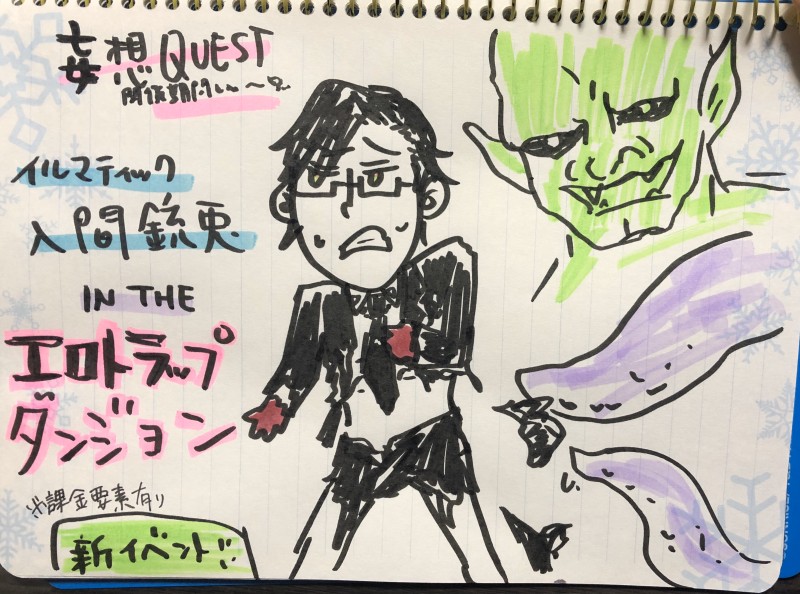 妄想QUEST
開催期間
イルマティック
入間銃兎
IN THE
エロトラップ
ダンジョン
※課金要素有り
新イベント!!